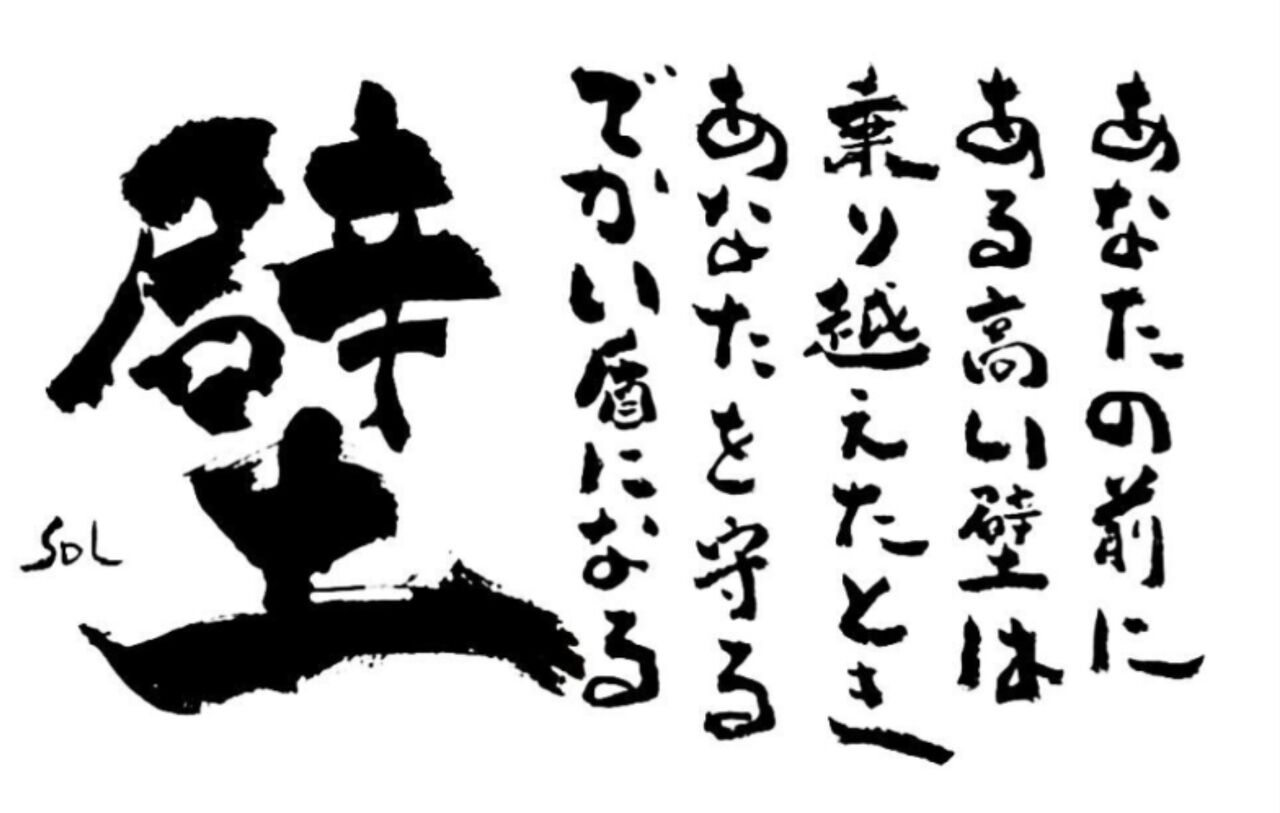 あなたの前に
ある高い壁は
乗り越えたとき
あなたを守る
でかい盾になる
壁
SOL